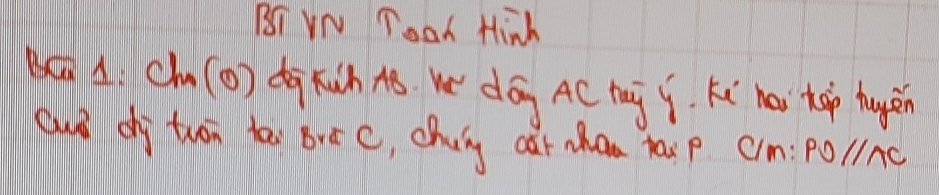 BT VN Toán Hình
Bài 1: Cho (O) đg kính AB. Vẽ dây AC tuỳ ý. Kẻ hai tiếp tuyến
của đg tròn tại B và C, chúng cắt nhau tại P. C/m: PO//AC